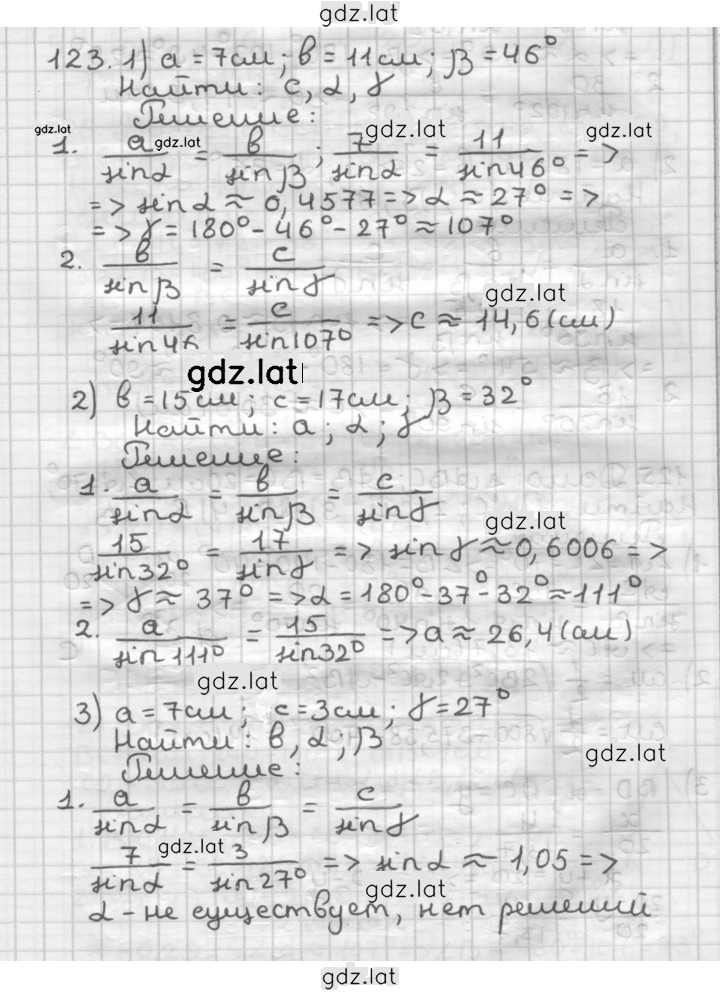 gdz.lat
123. 1) a = 7см; b = 11см; β = 46°
Найти: c, α, γ
Решение:
gdz.lat gdz.lat gdz.lat gdz.lat
1. a/sinα = b/sinβ; 7/sinα = 11/sin46° =>
=> sinα ≈ 0,4577 => α ≈ 27° =>
=> γ = 180° - 46° - 27° ≈ 107°
2. b/sinβ = c/sinγ
gdz.lat
11/sin46 = c/sin107° => c ≈ 14,6 (см)
gdz.lat
2) b = 15см; c = 17см; β = 32°
Найти: a; α; γ
Решение:
1. a/sinα = b/sinβ = c/sinγ
gdz.lat
15/sin32° = 17/sinγ => sinγ ≈ 0,6006 =>
=> γ ≈ 37° => α = 180° - 37° - 32° ≈ 111°
2. a/sin111° = 15/sin32° => a ≈ 26,4 (см)
gdz.lat
3) a = 7см; c = 3см; γ = 27°
Найти: b, α; β
gdz.lat
Решение:
1. a/sinα = b/sinβ = c/sinγ
gdz.lat
7/sinα = 3/sin27° => sinα ≈ 1,05 =>
gdz.lat
α - не существует, нет решений
gdz.lat